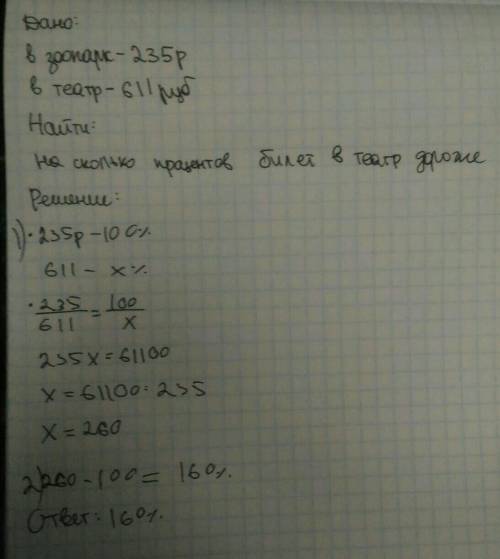 Дано:
в зоопарк - 235р
в театр - 611 руб
Найти:
на сколько працентов билет в театр дороже
Решение:
1) • 235р - 100%
611 - х%
• 235/611 = 100/х
235х = 61100
х = 61100 : 235
х = 260
2) 260 - 100 = 160%.
Ответ: 160%.